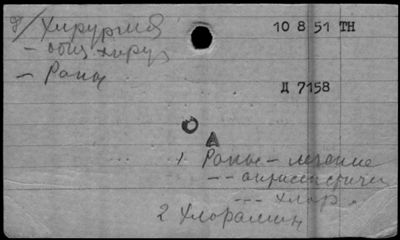 8/ Хирургия
10 8 51 ТН
– общ. хирур
– Раны
Д 7158
А
1. Раны – лечение
-- антисептичес
--- хлор.
2 Хлорамин